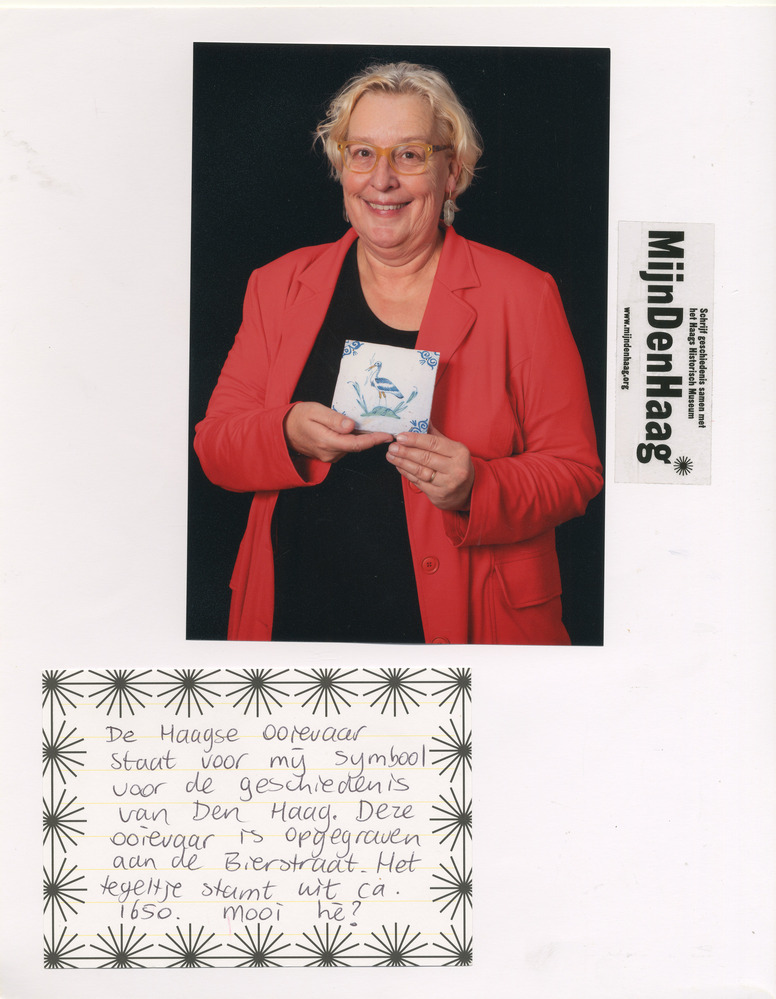 Schrijf geschiedenis samen met
het Haags Historisch Museum
MijnDenHaag
www.mijndenhaag.org
De Haagse ooievaar
staat voor mij symbool
voor de geschiedenis
van Den Haag. Deze
ooievaar is opgegraven
aan de Bierstraat. Het
tegeltje stamt uit ca.
1650. mooi hè?